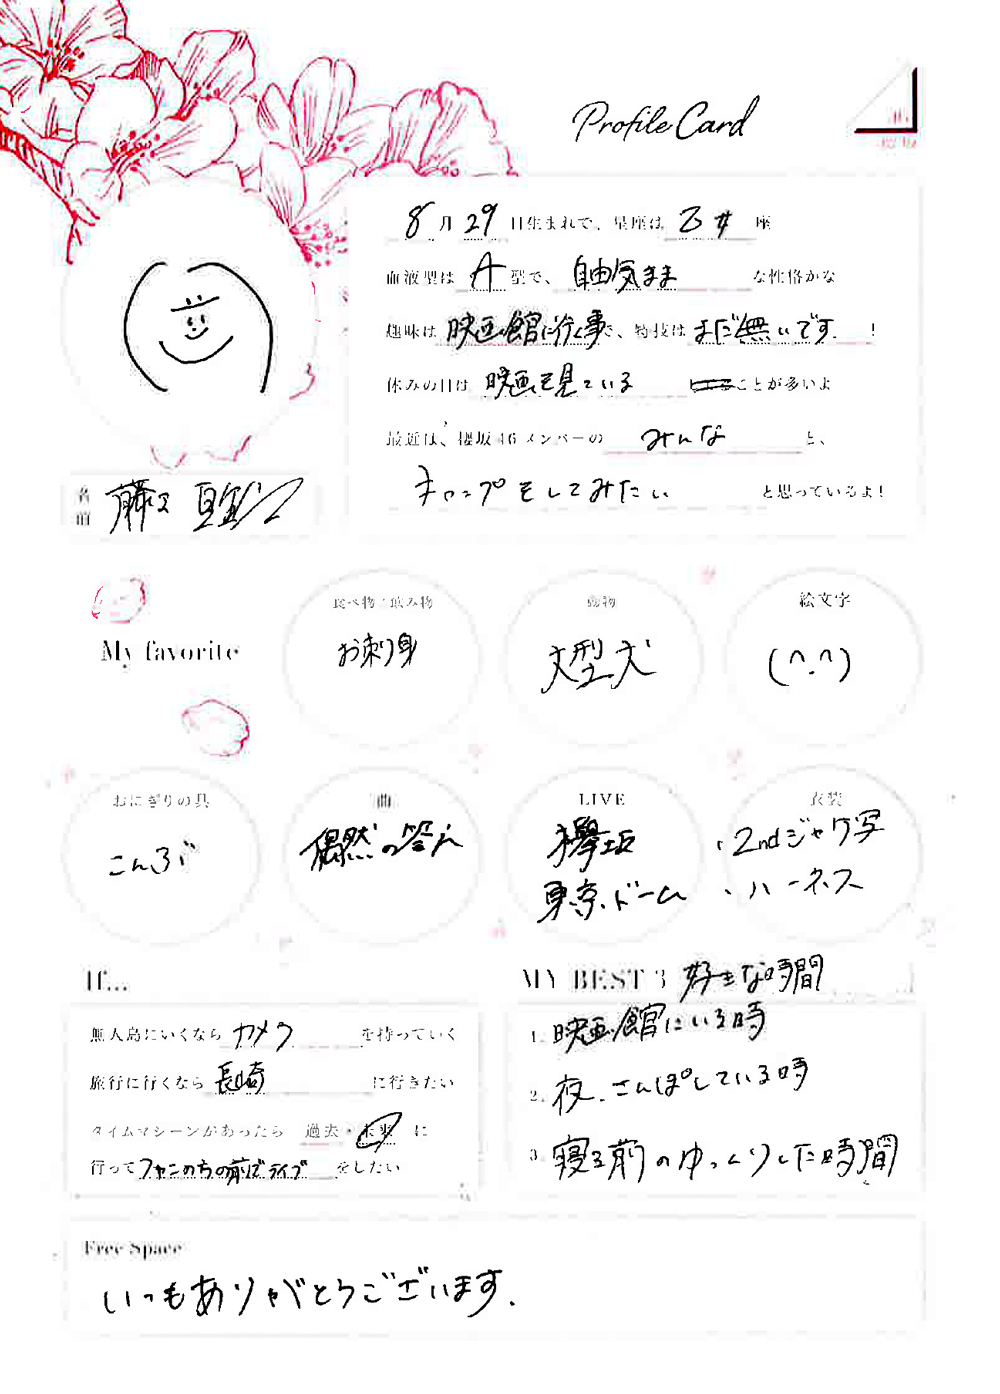 Profile Card
8月29日生まれで、星座は乙女座
血液型はA型で、自由気ままな性格かな
趣味は映画館に行く事で、特技はまだ無いです。!
休みの日は映画を見ていることが多いよ
最近は、櫻坂46メンバーのみんなと、
キャンプをしてみたいと思っているよ!
名前
My favorite
食べ物・飲み物
お刺身
動物
大型犬
絵文字
(^.^)
おにぎりの具
こんぶ
曲
偶然の答え
LIVE
欅坂
東京ドーム
衣装
・2ndジャケ写
・ハーネス
If...
無人島にいくならカメラを持っていく
旅行に行くなら長崎に行きたい
タイムマシーンがあったら 過去・未来 に
行ってファンの方の前でライブをしたい
MY BEST 3 好きな時間
1. 映画館にいる時
2. 夜、さんぽしている時
3. 寝る前のゆっくりした時間
Free Space
いつもありがとうございます。